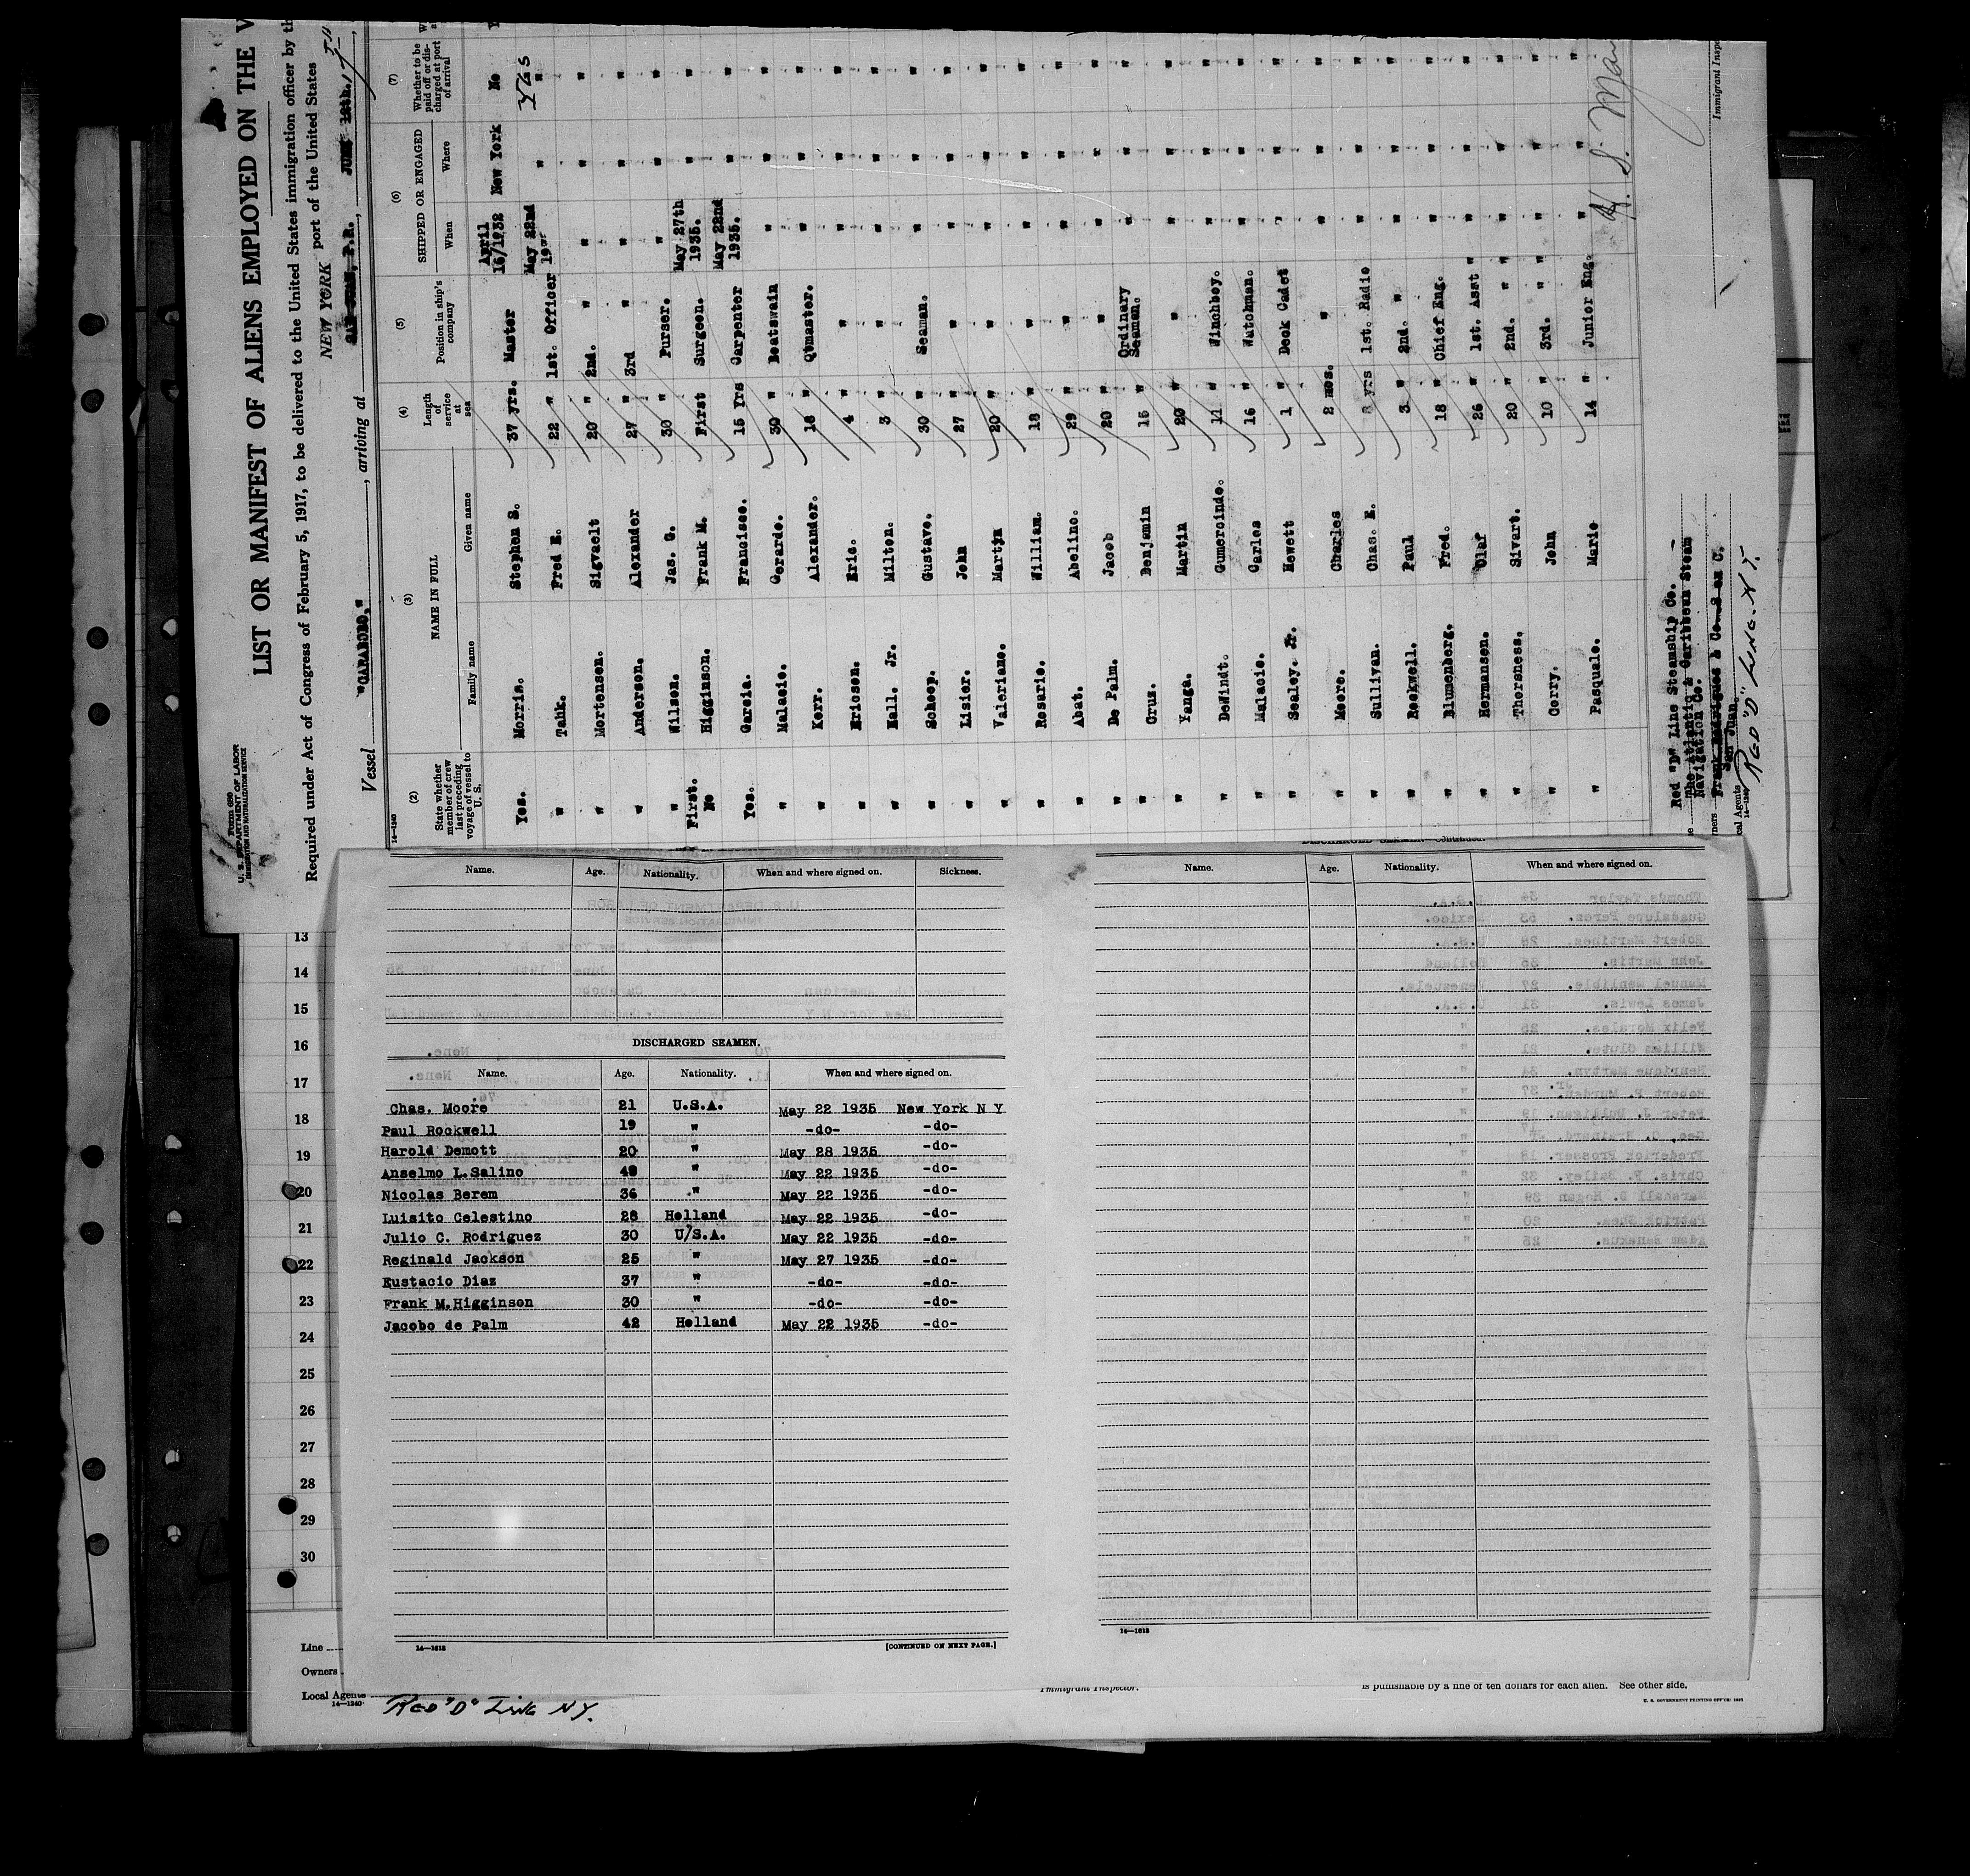 Form 680
U. S. DEPARTMENT OF LABOR
IMMIGRATION AND NATURALIZATION SERVICE
LIST OR MANIFEST OF ALIENS EMPLOYED ON THE V
Required under Act of Congress of February 5, 1917, to be delivered to the United States immigration officer by th
NEW YORK port of the United States
Vessel "CARABOBO," , arriving at SAN JUAN, P.R. , JUNE 12th.
14—1240
(2) (3) (4) (5) (6) (7)
State whether member of crew last preceding voyage of vessel to U. S.
NAME IN FULL
Family name Given name
Length of service at sea
Position in ship's company
SHIPPED OR ENGAGED
When Where
Whether to be paid off or discharged at port of arrival
Yes. Morris. Stephen S. 37 yrs. Master April 16/1932 New York No
" Tahk. Fred E. 22 " 1st. Officer May 22nd " Yes "
" Mortensen. Sigvaelt 20 " 2nd. " " " "
" Anderson. Alexander 27 " 3rd " " " "
" Wilson. Jas. C. 30 " Purser. " " "
First. No Higginson. Frank M. First Surgeon. May 27th 1935. " "
Yes. Garcia. Francisco. 15 Yrs Carpenter May 22nd 1935. " "
" Malacio. Gerardo. 30 " Boatswain " " "
" Kerr. Alexander. 18 " Qtmaster. " " "
" Ericson. Eric. 4 " " " " "
" Hall. Jr. Milton. 3 " " " " "
" Schoop. Gustave. 30 " Seaman. " " "
" Lisier. John 27 " " " " "
" Valeriano. Martyn 20 " " " " "
" Rosario. William. 18 " " " " "
" Abat. Abelino. 29 " " " " "
" De Palm. Jacob 20 " " " " "
" Cruz. Benjamin 15 " Ordinary Seaman. " " "
" Yanga. Martin 20 " " " " "
" DeWindt. Gumercindo. 11 " Winchboy. " " "
" Malacio. Carlos 16 " Watchman. " " "
" Sealey. Jr. Hewett 1 " Deck Cadet " " "
" Moore. Charles 2 mos. " " " "
" Sullivan. Chas. E. 8 yrs 1st. Radio " " "
" Rockwell. Paul 3 " 2nd. " " " "
" Blumenberg. Fred. 18 " Chief Eng. " " "
" Hermansen. Olaf 26 " 1st. Asst " " " "
" Thorsness. Sivart. 20 " 2nd. " " " " "
" Corry. John 10 " 3rd. " " " " "
" Pasquale. Mario 14 " Junior Eng. " " "
Red "D" Line Steamship Co.
The Atlantic & Caribbean Steam
Navigation Co.
San Juan
cal Agents RED "D" LINE. N Y.
14—1240
Immigrant Inspe
H. S.
Name. Age. Nationality. When and where signed on. Sickness.
DISCHARGED SEAMEN.
Name. Age. Nationality. When and where signed on.
Chas. Moore 21 U.S.A. May 22 1935 New York N Y
Paul Rockwell 19 " -do- -do-
Harold Demott 20 " May 28 1935 -do-
Anselmo L.Salino 48 " May 22 1935 -do-
Nicolas Berem 36 " May 22 1935 -do-
Luisito Celestino 28 Holland May 22 1935 -do-
Julio C. Rodriguez 30 U/S.A. May 22 1935 -do-
Reginald Jackson 25 " May 27 1935 -do-
Eustacio Diaz 37 " -do- -do-
Frank M.Higginson 30 " -do- -do-
Jacobo de Palm 42 Holland May 22 1935 -do-
14—1618
[CONTINUED ON NEXT PAGE.]
DISCHARGED SEAMEN—Continued.
Name. Age. Nationality. When and where signed on.
14—1618
13
14
15
16
17
18
19
20
21
22
23
24
25
26
27
28
29
30
Line
Owners
Local Agents RED "D" Line NY.
14—1240
Immigrant Inspector.
is punishable by a fine of ten dollars for each alien. See other side.
U. S. GOVERNMENT PRINTING OFFICE: 1931